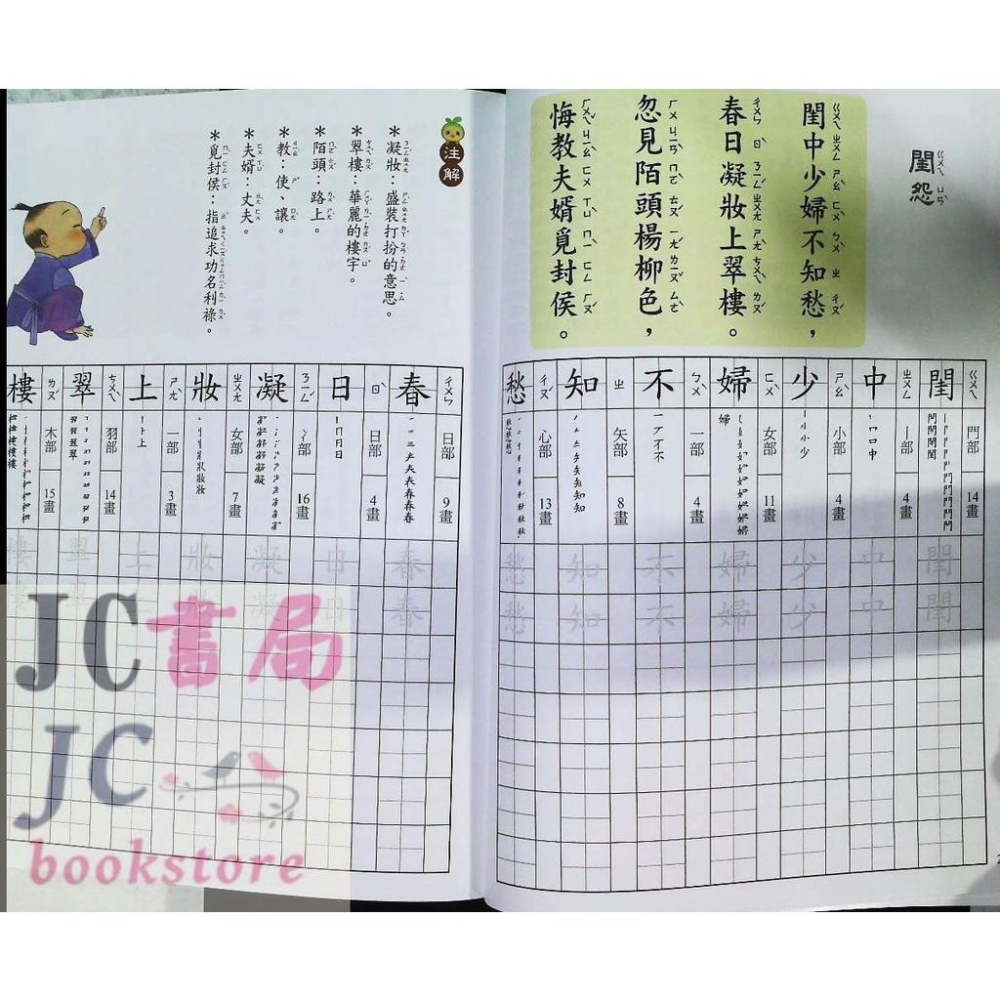 閨怨
閨中少婦不知愁，
春日凝妝上翠樓。
忽見陌頭楊柳色，
悔教夫婿覓封侯。
閨 ㄍㄨㄟ 門部 14畫
中 ㄓㄨㄥ 丨部 4畫
少 ㄕㄠˋ 小部 4畫
婦 ㄈㄨˋ 女部 11畫
不 ㄅㄨˋ 一部 4畫
知 ㄓ 矢部 8畫
愁 ㄔㄡˊ 心部 13畫
注解
＊凝妝：盛裝打扮的意思。
＊翠樓：華麗的樓宇。
＊陌頭：路上。
＊教：使、讓。
＊夫婿：丈夫。
＊覓封侯：指追求功名利祿。
春 ㄔㄨㄣ 日部 9畫
日 ㄖˋ 日部 4畫
凝 ㄋㄧㄥˊ 冫部 16畫
妝 ㄓㄨㄤ 女部 7畫
上 ㄕㄤˋ 一部 3畫
翠 ㄘㄨㄟˋ 羽部 14畫
樓 ㄌㄡˊ 木部 15畫
JC書局
JC
bookstore